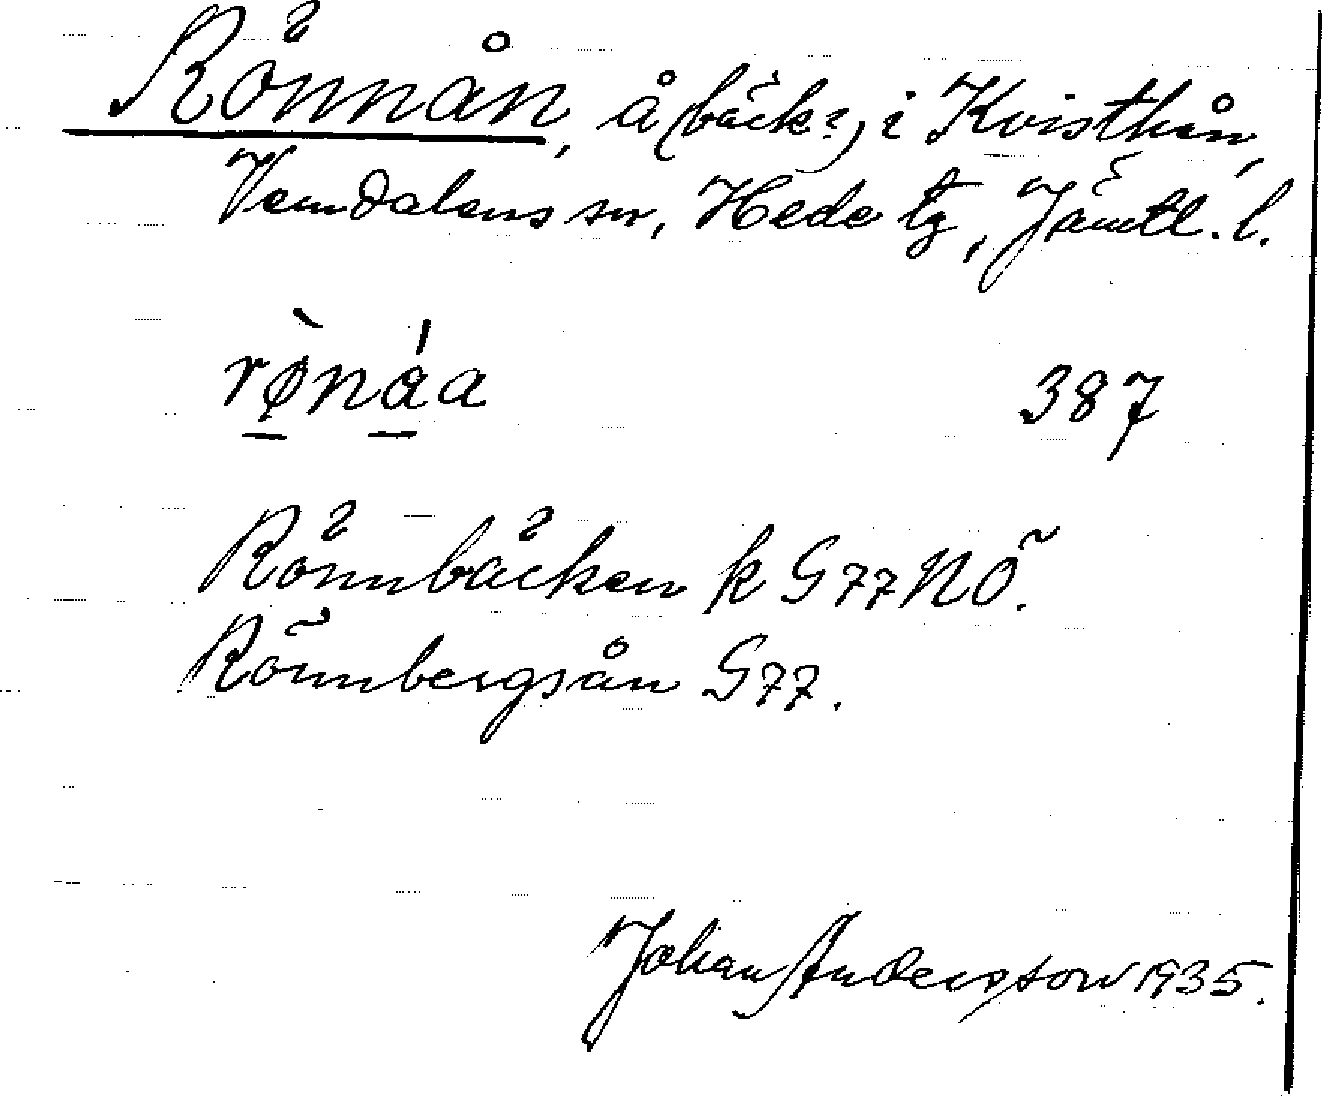 Rönnån, å (bäck?) i Kvisthån,
Vemdalens sn, Hede tg, Jämtl. l.
rø̀náa 387
Rönnbäcken k G77NÖ.
Rönnbergsån G77.
Johan Andersson 1935.